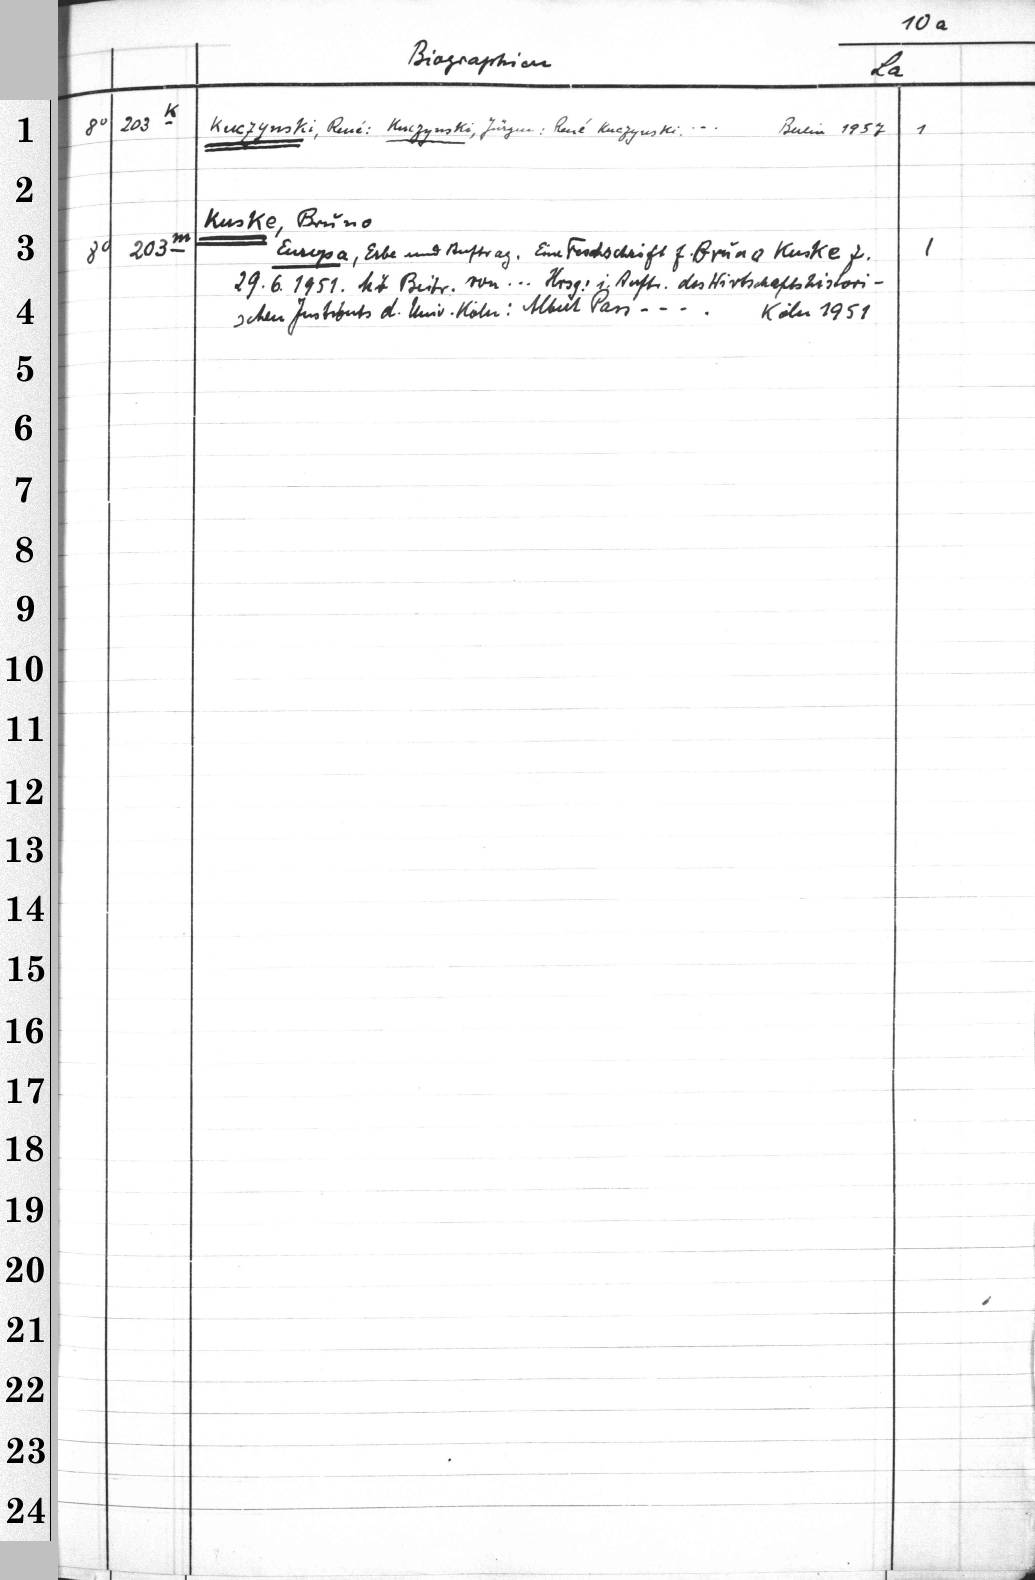 10a
Biographien
La
1 8° 203 K Kuczynski, René: Kuczynski, Jürgen: René Kuczynski. ... Berlin 1957 1
2
Kuske, Bruno
3 8° 203 m Europa, Erbe und Auftrag. Eine Festschrift f. Bruno Kuske z. 1
29.6.1951. Mit Beitr. von ... Hrsg. i. Auftr. des Wirtschaftshistori-
4 schen Instituts d. Univ. Köln: Albert Pass - - - . Köln 1951
5
6
7
8
9
10
11
12
13
14
15
16
17
18
19
20
21
22
23
24